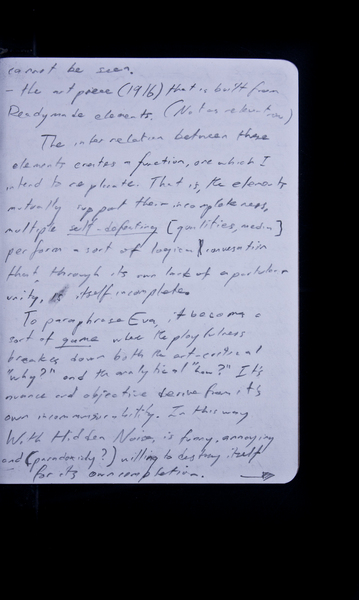 cannot be seen.
- the art piece (1916) that is built from
Readymade elements. (Not as relevant
The inter relation between these
elements creates a function, one which I
intend to replicate. That is, the elements
mutually support their incompleteness,
multiple self-defeating [qualities, media]
perform a sort of logical conversation
that, through its own lack of a particular
unity, is itself incomplete.
To paraphrase Eva, it became a
sort of game where the playfulness
breaks down both the art-centered
"why?" and the analytical "how?" It's
nuance and objective derive from it's
own incommensurability. In this way
With Hidden Noise, is funny, annoying
and (paradoxically?) willing to destroy itself
for its own completion. →